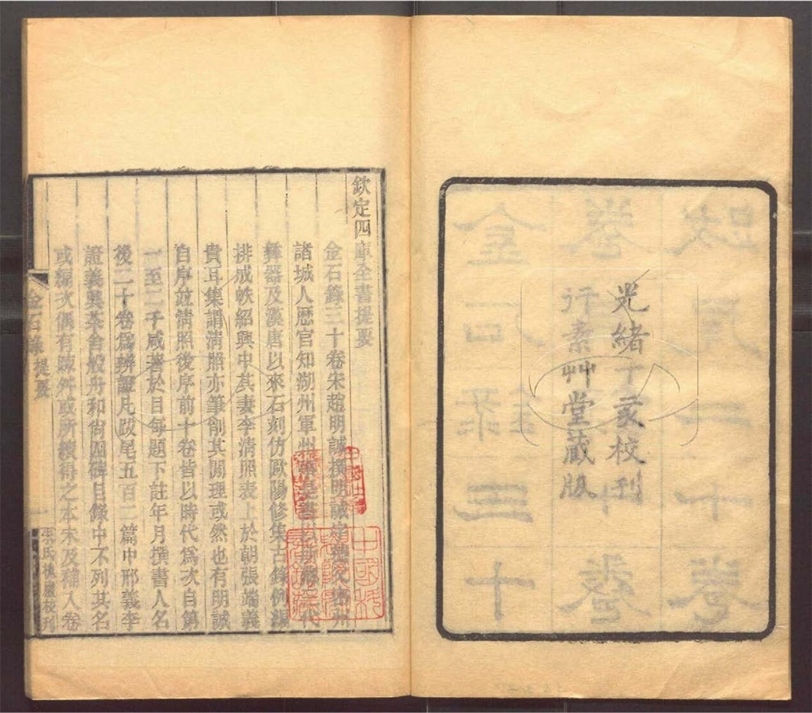 光緒丁亥校刊
行素艸堂藏版
欽定四庫全書提要
金石錄三十卷宋趙明誠撰明誠字德父密州
諸城人歷官知湖州軍州事是書以所藏三代
彝器及漢唐以來石刻仿歐陽修集古錄例編
排成帙紹興中其妻李清照表上於朝張端義
貴耳集謂清照亦筆削其間理或然也有明誠
自序並清照後序前十卷皆以時代爲次自第
一至二千咸著於目每題下註年月撰書人名
後二十卷爲辨證凡跋尾五百二篇中邢義李
證義興茶舍般舟和尚四碑目錄中不列其名
或編次偶有疎舛或所續得之本未及補入卷
金石錄 提要 一 朱氏槐廬校刊